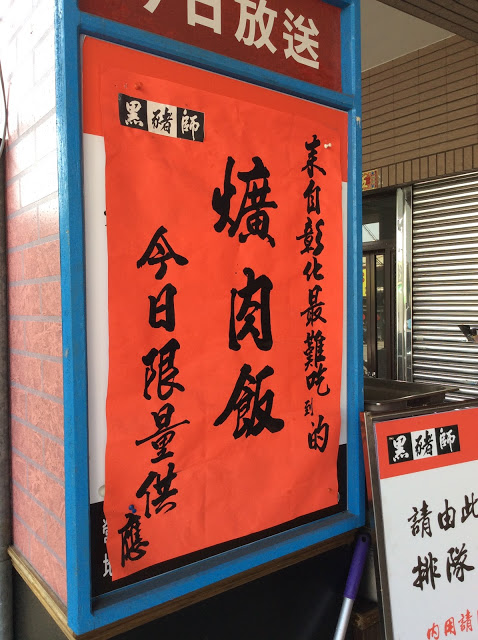 今日放送
黑豬師
來自彰化最難吃到的
爌肉飯
今日限量供應
黑豬師
請由此
排隊
內用請